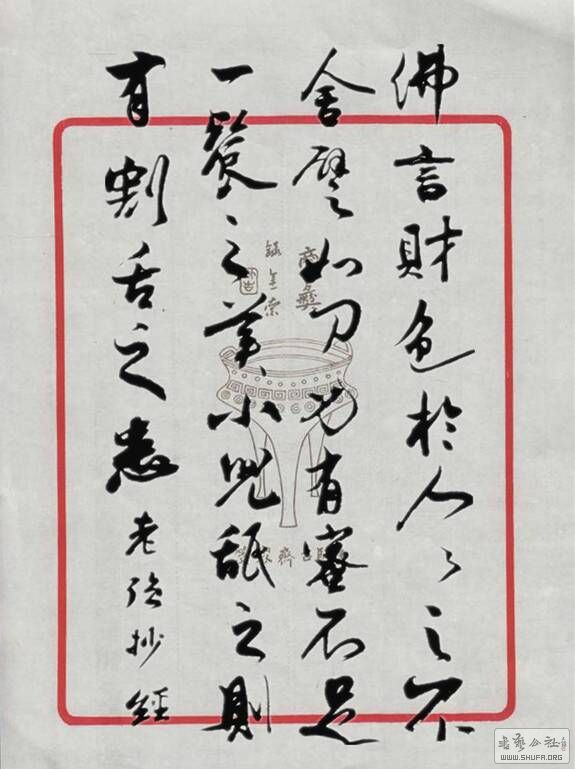 佛言財色於人々之不
舍譬如刀刃有蜜不足
一餐之美小兒舐之則
有割舌之患 老 抄經
商彝
金索
書藝公社
WWW.SHUFA.ORG